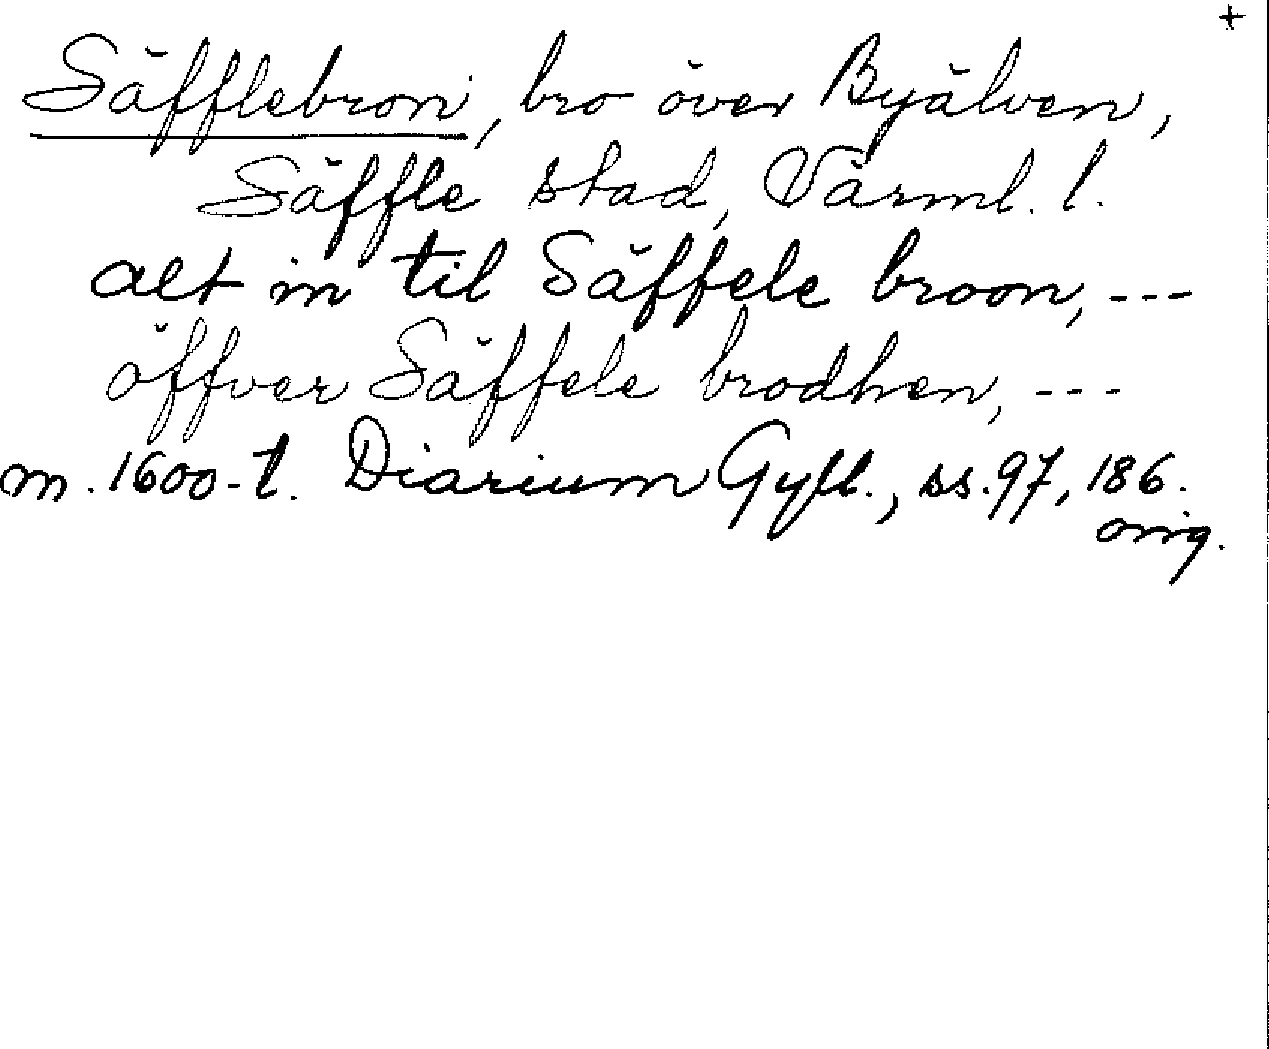 +
Säfflebron, bro över Byälven,
Säffle stad, Värml. l.
alt in til Säffele broon, ---
öffver Säffele brodhen, ---
m. 1600-t. Diarium Gyll., ss. 97, 186.
orig.